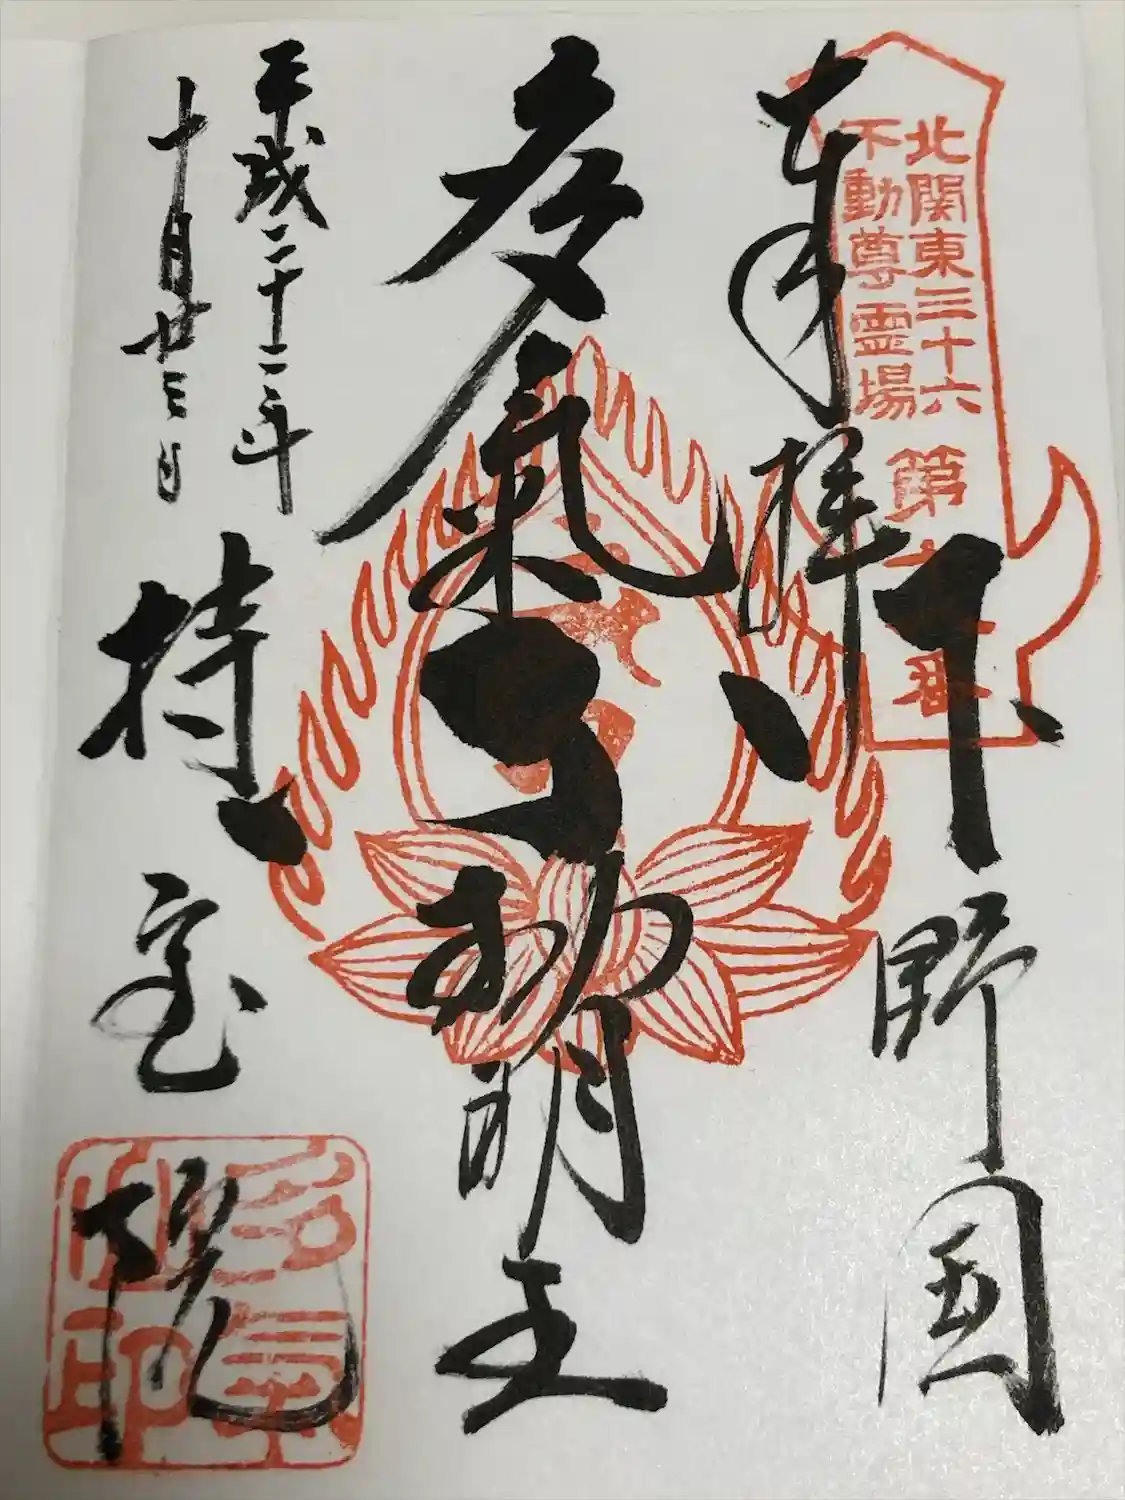 奉拝
下野国
北関東三十六
不動尊霊場
第
番
多氣不動明王
平成二十二年
十月廿三日
持宝院
多氣
山印